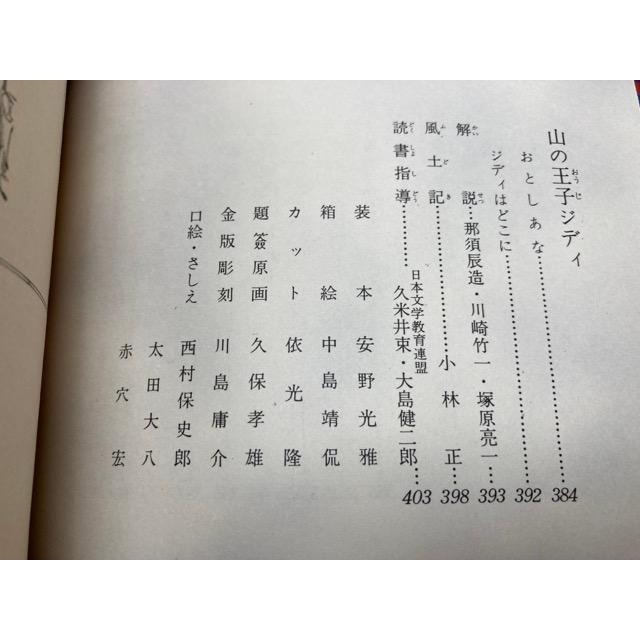 山の王子ジディ
おとしあな……384
ジディはどこに……392
解説…那須辰造・川崎竹一・塚原亮一…393
風土記……小林正…398
読書指導……日本文学教育連盟 久米井束・大島健二郎…403
装本 安野光雅
箱絵 中島靖侃
カット 依光隆
題簽原画 久保孝雄
金版彫刻 川島庸介
口絵・さしえ 西村保史郎
太田大八
赤穴宏